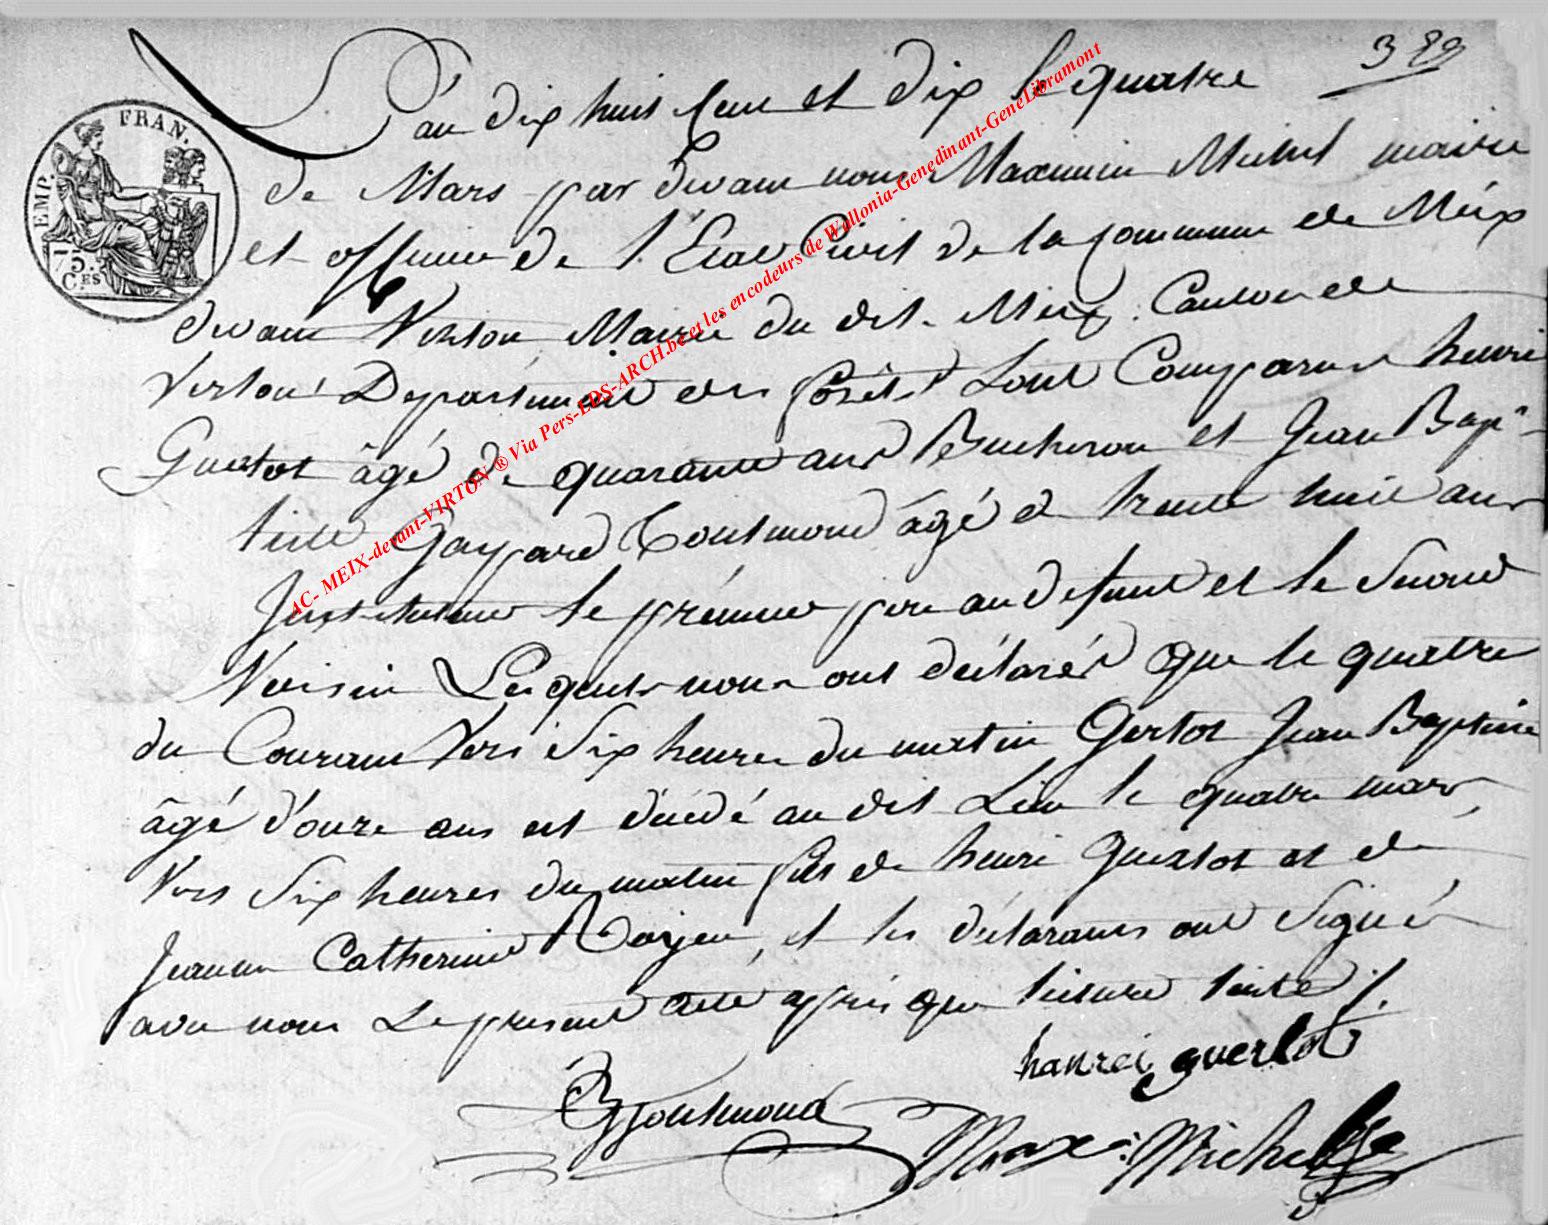 389
FRAN.
EMP.
75.
C.ES
L'an dix huit cent et dix le quatre
de Mars par devant nous Maximin Michel maire
et officier de l'État Civil de la commune de Méix
devant Virton, Mairie du dit Meix, Canton de
Virton Departement des forêts sont Comparus henri
Guertot âgé de quarante ans Bucheron et Jean Bap-
tiste Gaspard Toutmond âgé de trente huit ans
Instituteur le prémier pere au defunt et le Second
Voisin Lesquels nous ont déclarés que le quatre
du Courant Vers Six heures du matin Gertot Jean Baptiste
âgé d'onze ans est décédé au dit Lieu le quatre mars
Vers Six heures du matin fils de henri Guertot et de
Jeanne Catherine et les déclarants ont Signé
avec nous Le present acte après que lecture faite
hanrei guerlot
Toutmond
Max: Michel
AC- MEIX-devant-VIRTON ® Via Pers-EDS-ARCH.be et les encodeurs de Wallonia-Genedinant-GeneLibramont